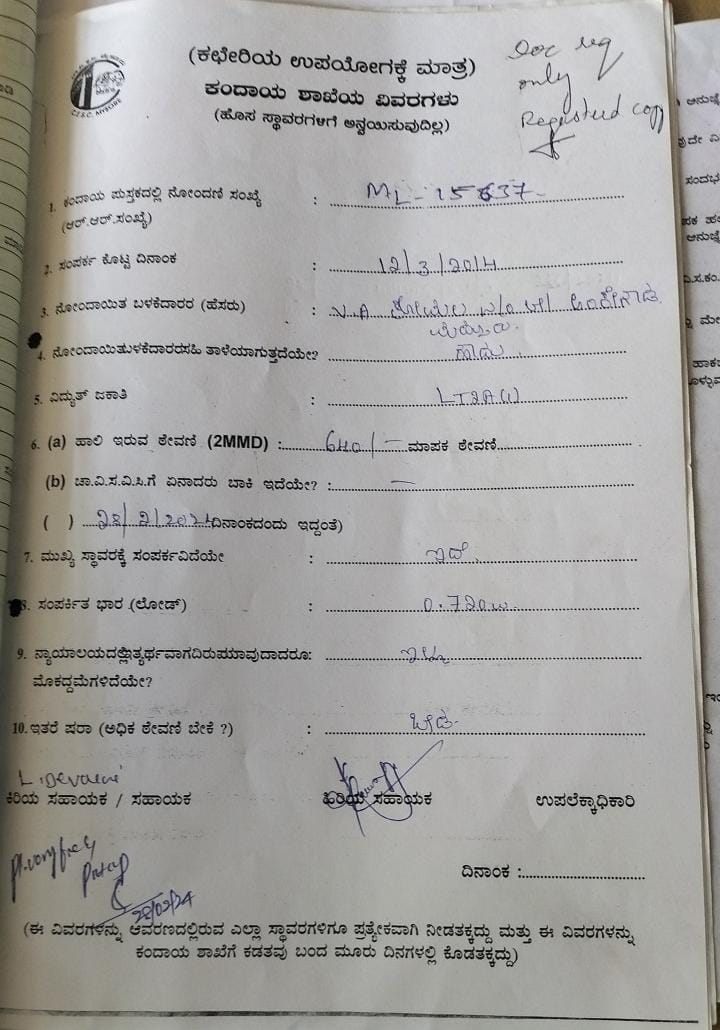 (ಕಛೇರಿಯ ಉಪಯೋಗಕ್ಕೆ ಮಾತ್ರ)
ಕಂದಾಯ ಶಾಖೆಯ ವಿವರಗಳು
(ಹೊಸ ಸ್ಥಾವರಗಳಿಗೆ ಅನ್ವಯಿಸುವುದಿಲ್ಲ)
Doc req
only
Registerd copy
C.E.S.C, MYSORE
1. ಕಂದಾಯ ಪುಸ್ತಕದಲ್ಲಿ ನೋಂದಣಿ ಸಂಖ್ಯೆ : ML-15637
(ಆರ್.ಆರ್.ಸಂಖ್ಯೆ)
2. ಸಂಪರ್ಕ ಕೊಟ್ಟ ದಿನಾಂಕ : 12/3/2014
3. ನೋಂದಾಯಿತ ಬಳಕೆದಾರರ (ಹೆಸರು) : N.A W/O
4. ನೋಂದಾಯಿತುಳಕೆದಾರರಸಹಿ ತಾಳೆಯಾಗುತ್ತದೆಯೇ? ಹೌದು
5. ವಿದ್ಯುತ್ ಜಕಾತಿ : LT2A(1)
6. (a) ಹಾಲಿ ಇರುವ ಠೇವಣಿ (2MMD) : 640/- ಮಾಪಕ ಠೇವಣಿ
(b) ಚಾ.ವಿ.ಸ.ವಿ.ಸಿ.ಗೆ ಏನಾದರು ಬಾಕಿ ಇದೆಯೇ? : —
( ) 28/2/2024 ದಿನಾಂಕದಂದು ಇದ್ದಂತೆ)
7. ಮುಖ್ಯ ಸ್ಥಾವರಕ್ಕೆ ಸಂಪರ್ಕವಿದೆಯೇ : ಇದೆ
8. ಸಂಪರ್ಕಿತ ಭಾರ (ಲೋಡ್) : 0.720w
9. ನ್ಯಾಯಾಲಯದಲ್ಲಿಇತ್ಯರ್ಥವಾಗದಿರುವಯಾವುದಾದರೂ: ಇಲ್ಲ
ಮೊಕದ್ದಮೆಗಳಿದೆಯೇ?
10. ಇತರೆ ಷರಾ (ಅಧಿಕ ಠೇವಣಿ ಬೇಕೆ ?) : ಬೇಡ
ಕಿರಿಯ ಸಹಾಯಕ / ಸಹಾಯಕ ಹಿರಿಯ ಸಹಾಯಕ ಉಪಲೆಕ್ಕಾಧಿಕಾರಿ
ದಿನಾಂಕ :
28/02/24
(ಈ ವಿವರಗಳನ್ನು ಆವರಣದಲ್ಲಿರುವ ಎಲ್ಲಾ ಸ್ಥಾವರಗಳಿಗೂ ಪ್ರತ್ಯೇಕವಾಗಿ ನೀಡತಕ್ಕದ್ದು ಮತ್ತು ಈ ವಿವರಗಳನ್ನು
ಕಂದಾಯ ಶಾಖೆಗೆ ಕಡತವು ಬಂದ ಮೂರು ದಿನಗಳಲ್ಲಿ ಕೊಡತಕ್ಕದ್ದು)